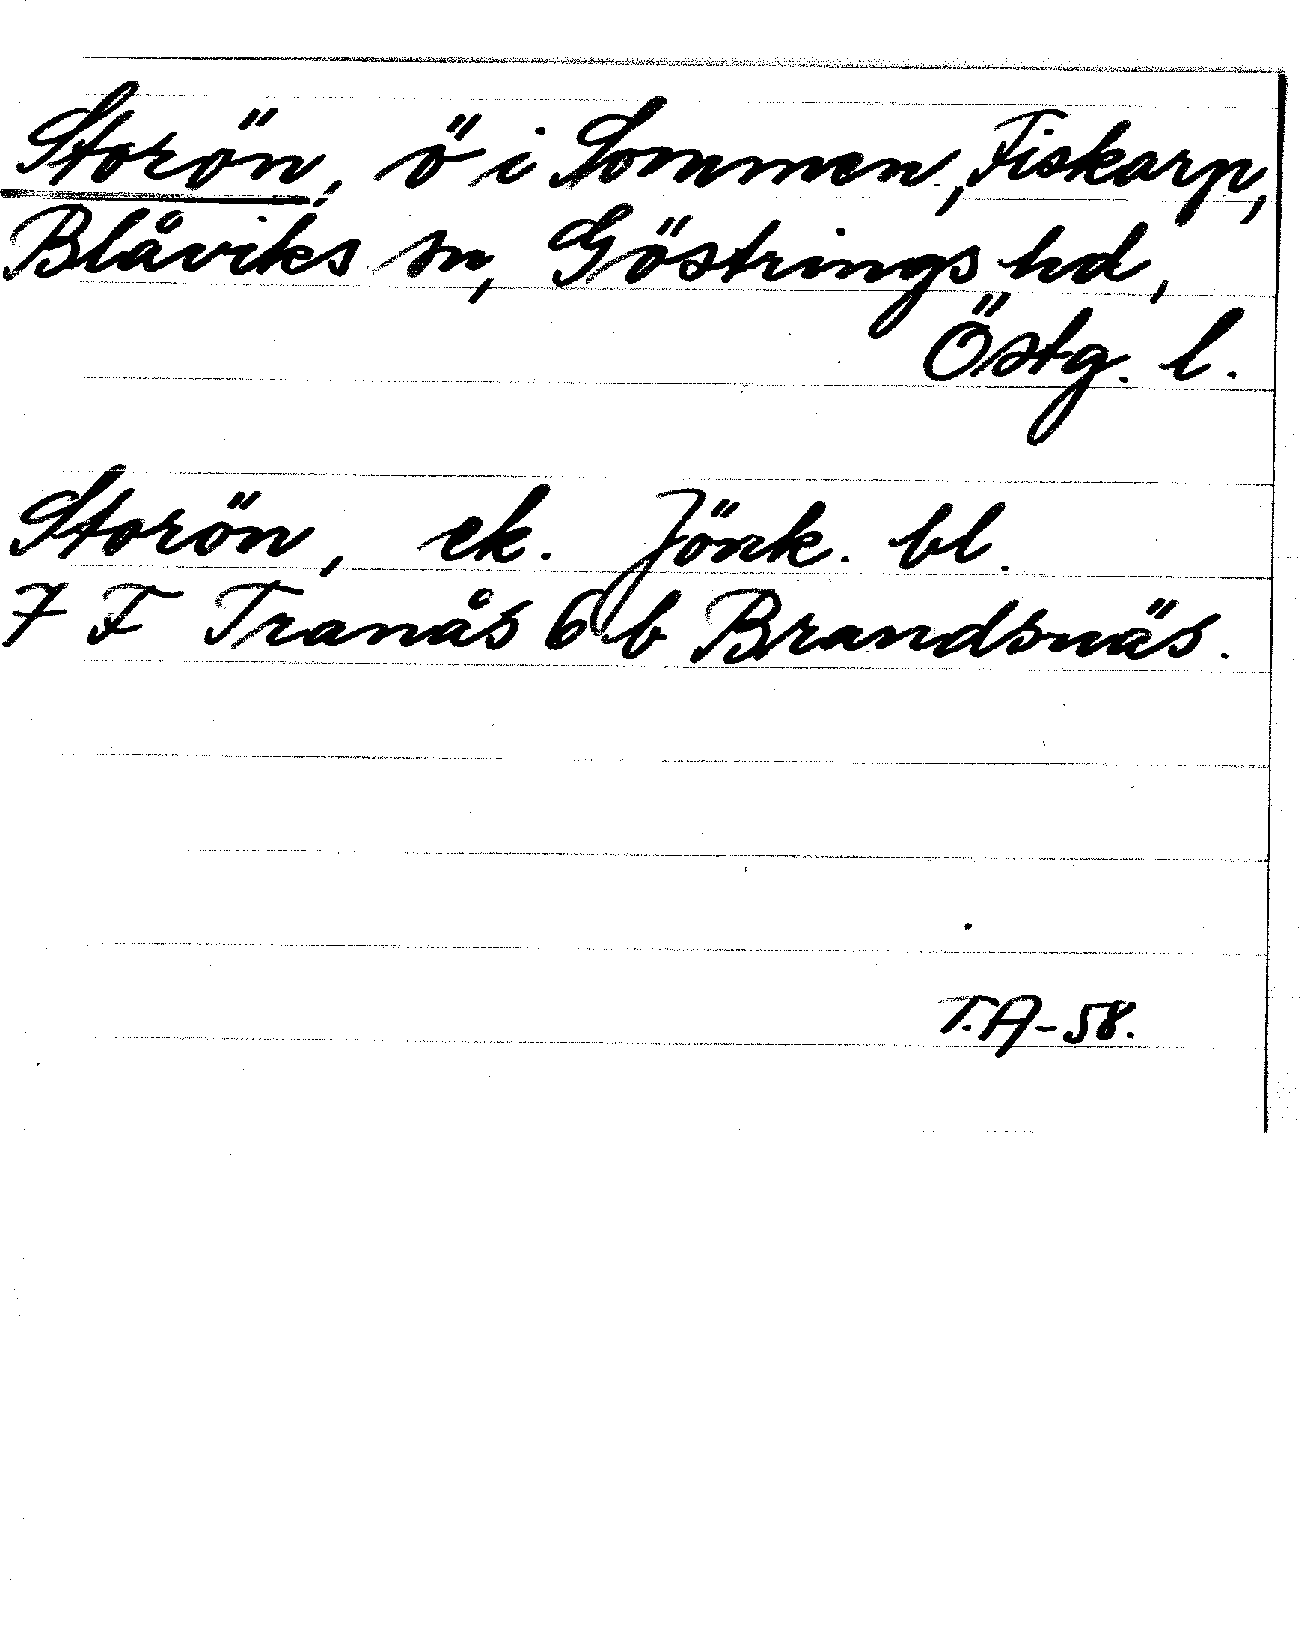 Storön, ö i Sommen, Fiskarp,
Blåviks sn, Göstrings hd,
Östg. l.
Storön, ek. Jönk. bl.
7 F Tranås 6 b Brandsnäs.
T.A-58.